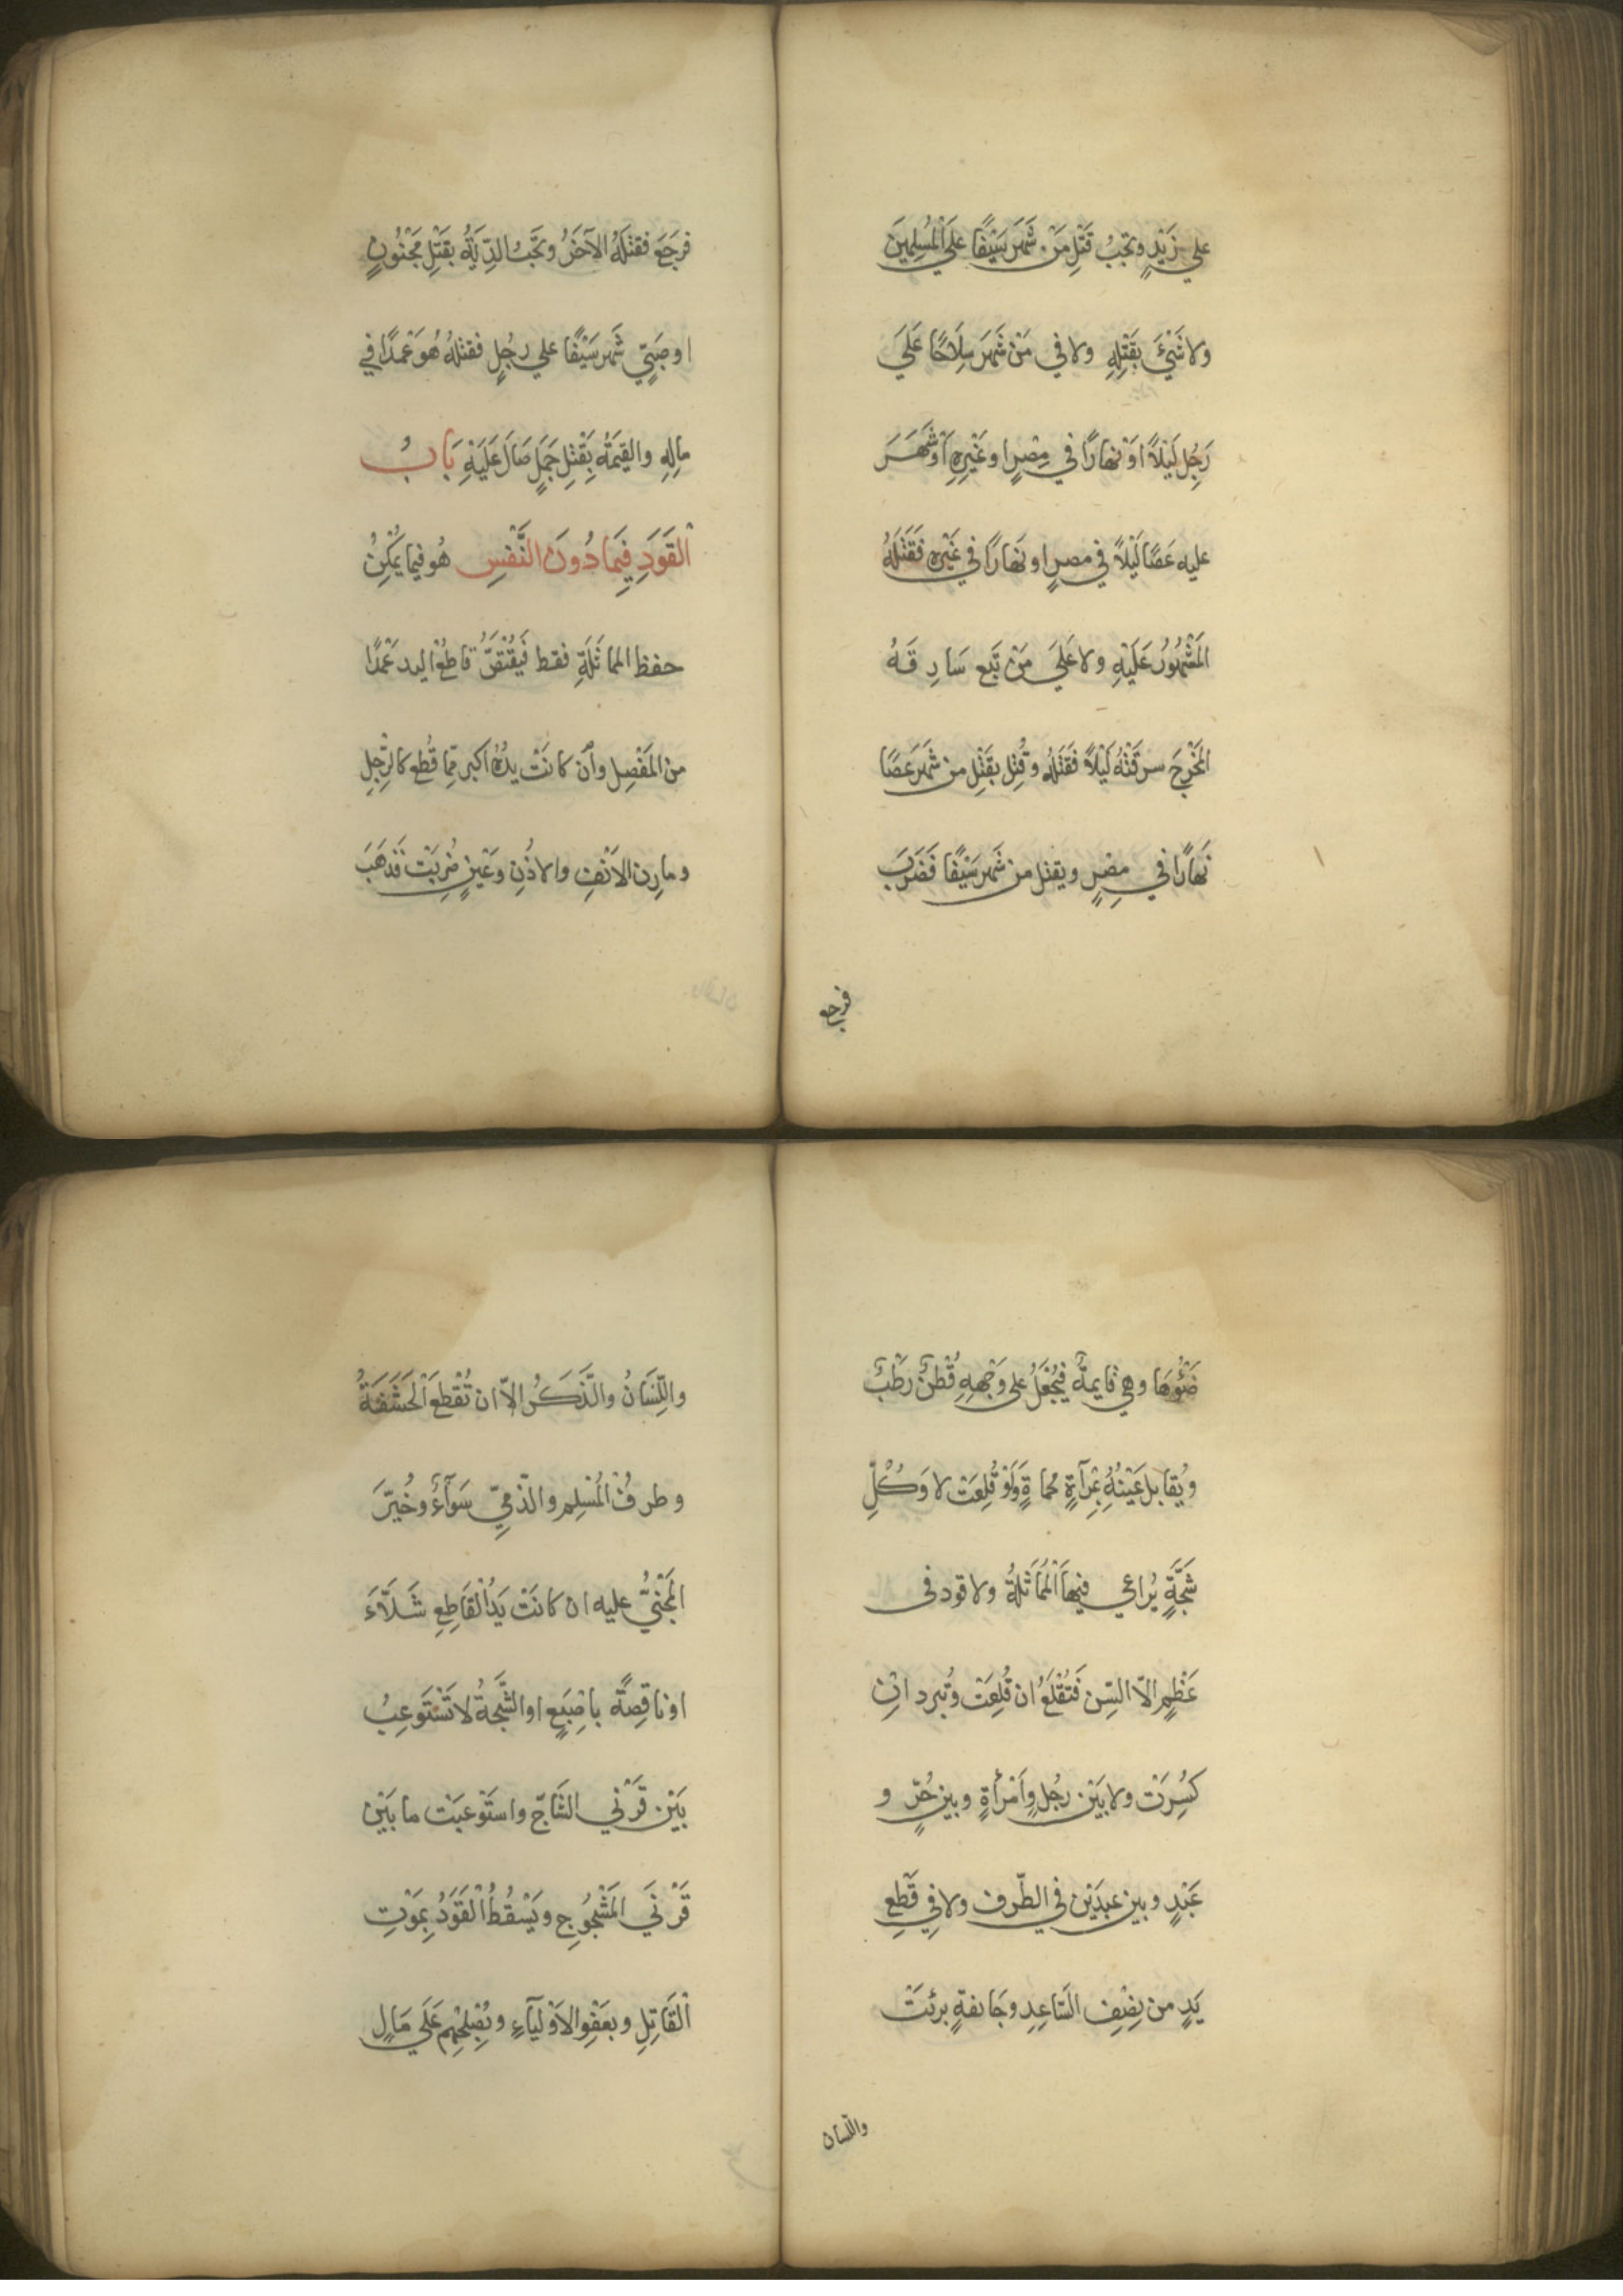 علي زَيْدٍ وتجبُ قَتْلِ مَنْ شَهَرَ سَيْفًا عَلَي الْمُسْلِمِينَ
ولا شَيْءَ بقَتْلِهِ ولا في مَنْ شَهَرَ سِلَاحًا عَلَيَ
رَجُلٍ لَيْلًا اَوْ نهارًا في مِصْرٍ او غَيْرِهِ اَوْ شَهَرَ
عليه عَصًا لَيْلًا في مصرٍ او نهارًا في غَيْرِهِ فَقَتَلَهُ
المَشْهُورُ عَلَيْهِ ولا عَلَيَ مَنْ تَبِع سَارِقَهُ
المَخْرِجَ سرقَتْهُ لَيْلًا فَقَتَلَهُ وقُتِل بقَتْلِ من شَهَرَ عَصًا
نَهَارًا في مِصْرٍ ويقتل من شَهَر سَيْفًا فَضَرَبَ
فرجع
فرجَعَ فقتَلَهُ الآخَرُ وتَجَبُ الدِّيَةُ بقَتْلِ مَجْنُونٍ
او صَبيٍّ شَهَر سَيْفًا علي رجُلٍ فقتلهُ هُوَ عَمْدًا في
مالِهِ والقيمَةُ بِقَتْلِ جَمَلٍ صَالَ عَلَيْهِ بَابُ
الْقَوَدِ فِيَما دُونَ النَّفْسِ هُو فيما يُمْكِنُ
حفظ المماثَلَةِ فقط فَيُقْتَصُّ قاطعُ اليد عَمْدًا
من المَفْصِل وأن كانَتْ يدُهُ اكبر مِمّا قُطِع كالرِّجلِ
ومارِن الاَنْفِ والاذُنِ وعَيْنٍ ضُرِبَتْ فَذَهَبَ
ضَوْؤُهَا وهي قايمةٌ فَيُجْعَلُ علي وَجْهِهِ قُطْنٌ رَطْبٌ
ويُقابل عَيْنُهُ بِمِرآةٍ محماةٍ وَلَوْ قُلِعَتْ لا وَكُلِّ
شَجَّةٍ يُراعي فيها المُمَاثَلَةُ ولا قود فى
عَظْمٍ الاّ السِّن فَتُقْلَعُ ان قُلِعَتْ وتُبرد ان
كُسِرَتْ ولا بَيْن رجُلٍ وَاَمْرأةٍ وبين حُرٍّ و
عَبْدٍ وبين عبدَيْن في الطّرف ولا في قَطعِ
يَدٍ من نِصْفِ السَّاعِدِ وجَايفةٍ برئتْ
واللّسان
واللِّسَانُ والذَّكَرُ الاّ ان تُقْطَعَ الْحَشَفَةُ
وطرفُ المُسْلِم والذّميّ سَوَآءٌ وخُيّرَ
المَجْنيُّ عليه ان كانَتْ يَدُ الْقَاطِعِ شَلَّآءَ
او ناقِصَةً باصْبَعٍ او الشَّجةُ لا تَسْتَوعِبُ
بَيْن قَرْني الشَّاجّ واستَوْعبَتْ ما بَيْن
قَرْنَي المَشْجُوجِ ويَسْقُطُ الْقَوَدُ بِمَوْتِ
الْقَاتِلِ وبعَفْوِ الاَوْليآءِ وبِصُلحِهِم عَلَي مَالٍ